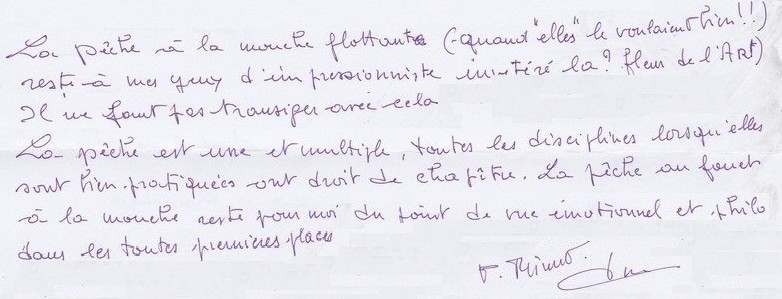 La pêche à la mouche flottante (quand "elles" le voulaient bien!!)
reste à mes yeux d'impressionniste la? fleur de l'ART)
Il ne faut pas transiger avec cela
La pêche est une et multiple, toutes les disciplines lorsqu'elles
sont bien pratiquées ont droit de chapître. La pêche au fouet
à la mouche reste pour moi du point de vue émotionnel et philo
dans les toutes premières places